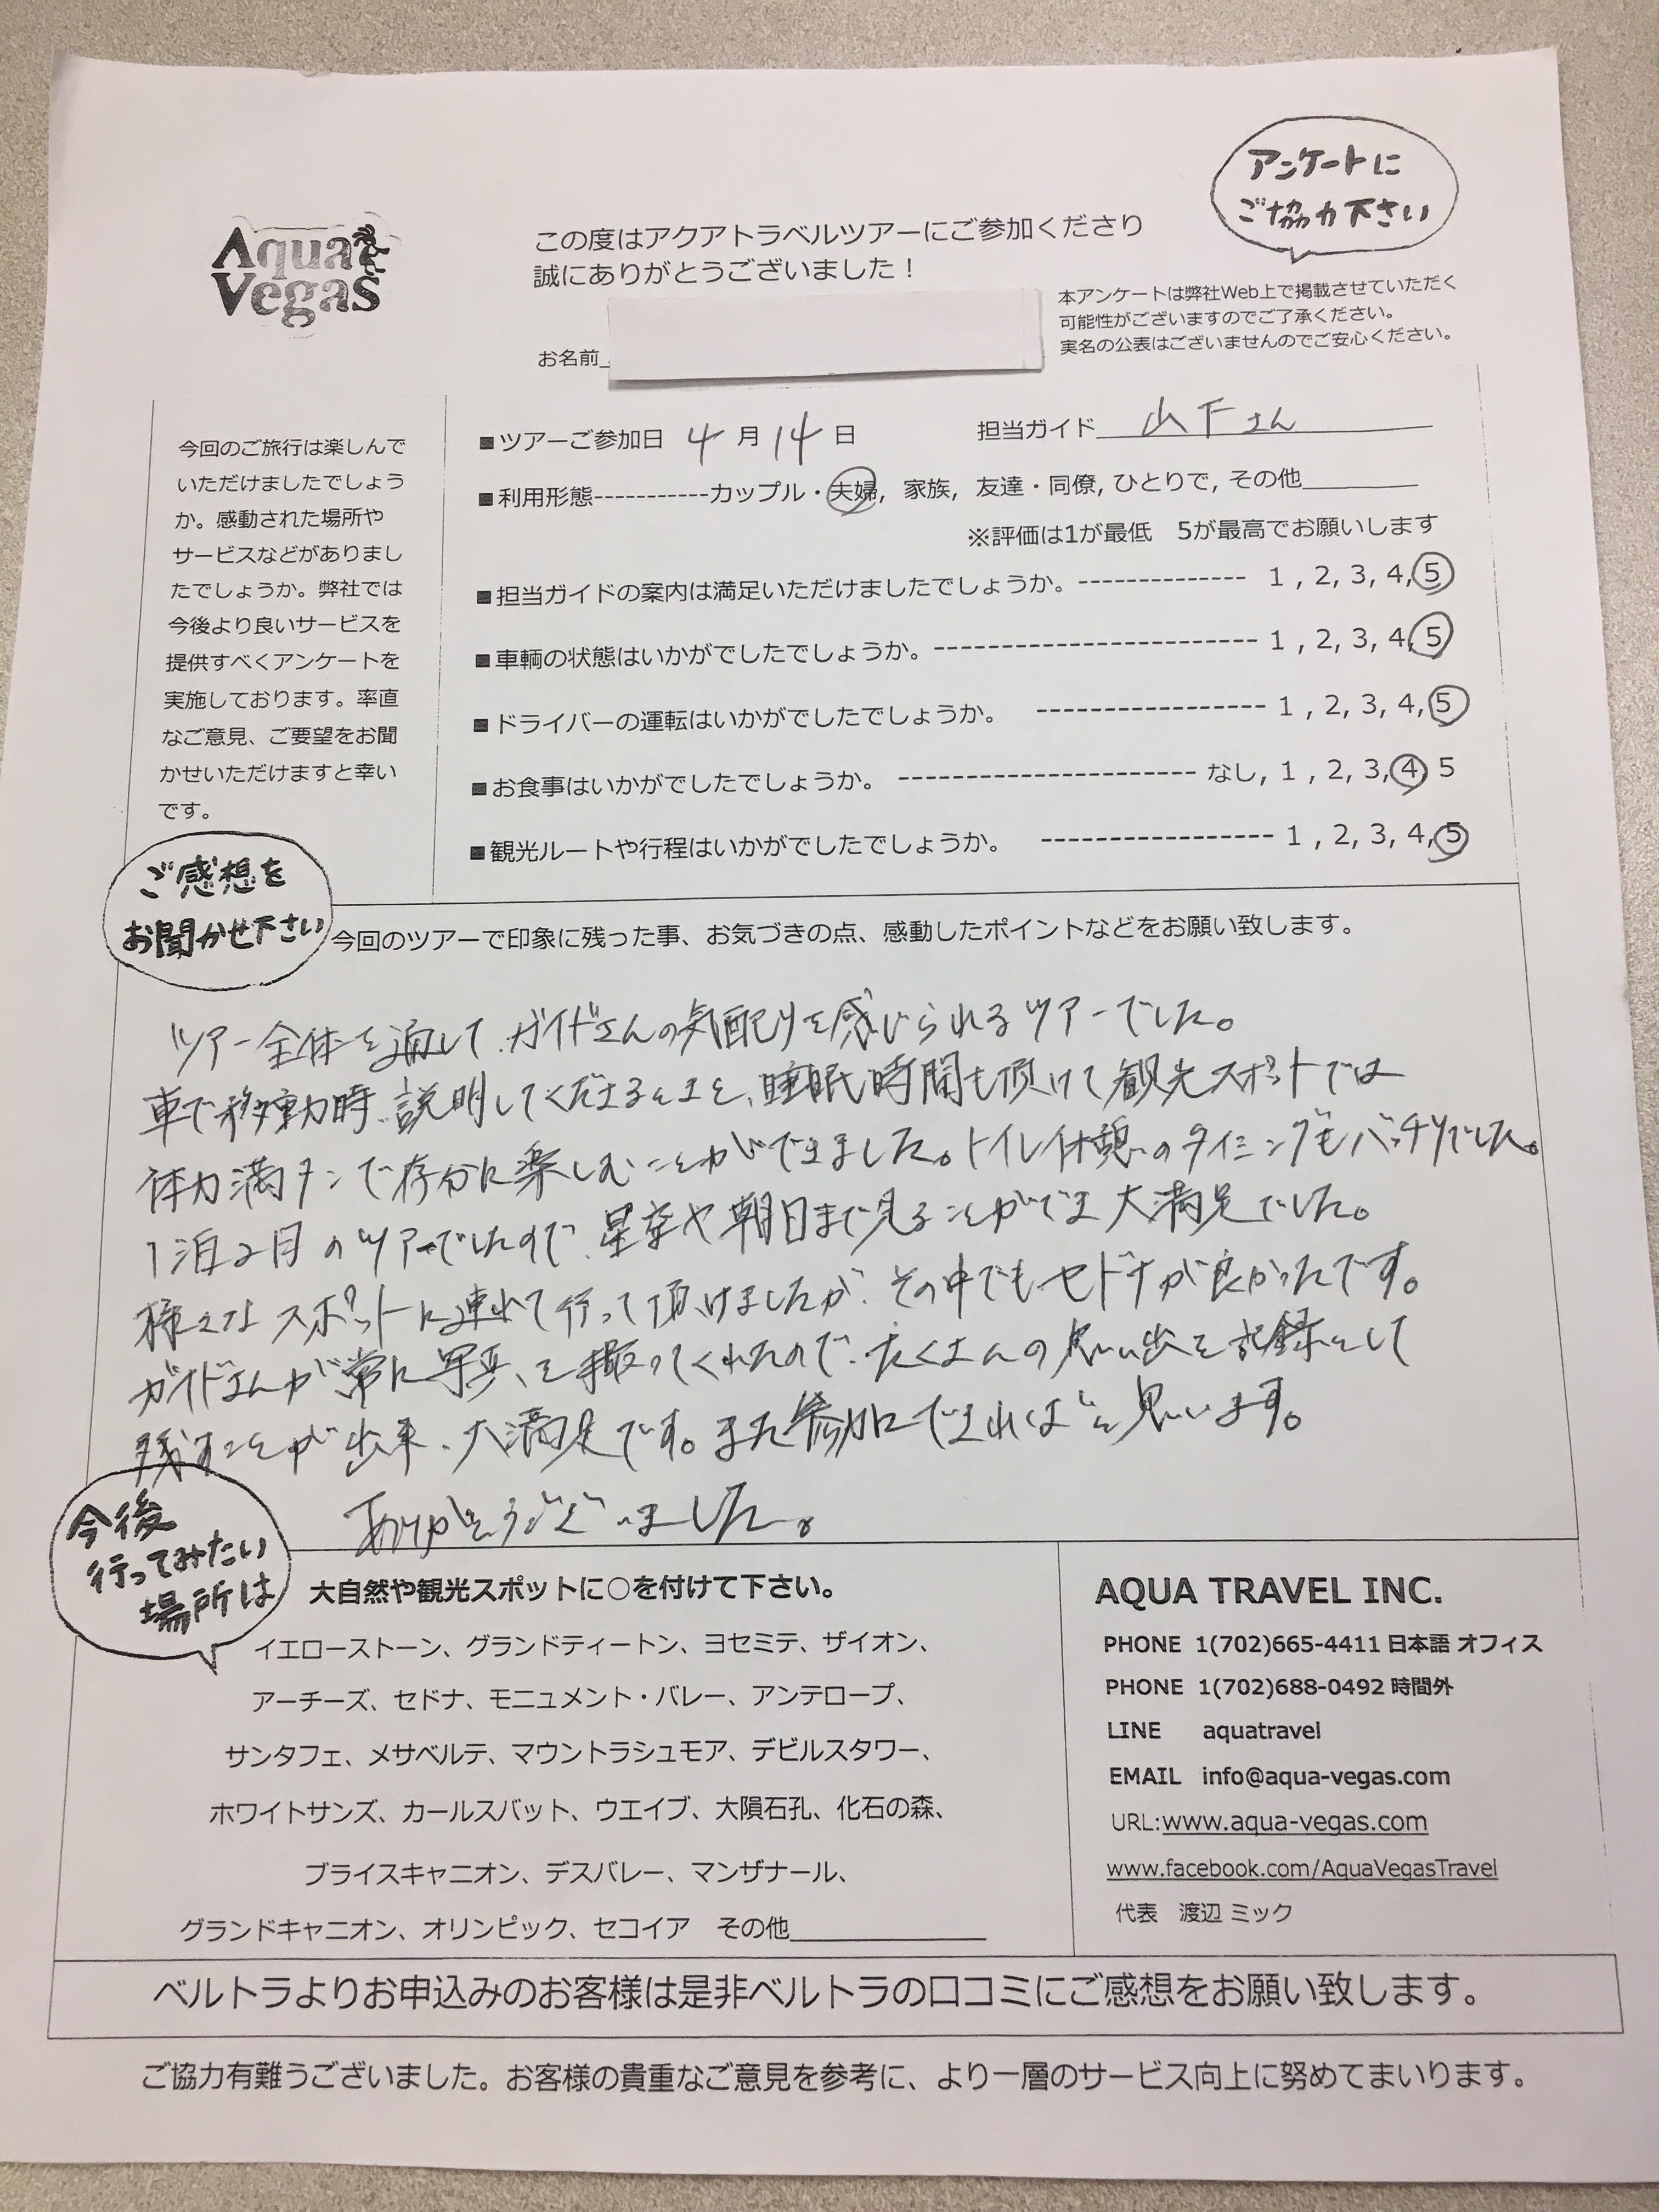 アンケートに
ご協力下さい
Aqua
Vegas
この度はアクアトラベルツアーにご参加くださり
誠にありがとうございました！
本アンケートは弊社Web上で掲載させていただく
可能性がございますのでご了承ください。
実名の公表はございませんのでご安心ください。
お名前
今回のご旅行は楽しんで
いただけましたでしょう
か。感動された場所や
サービスなどがありまし
たでしょうか。弊社では
今後より良いサービスを
提供すべくアンケートを
実施しております。率直
なご意見、ご要望をお聞
かせいただけますと幸い
です。
■ツアーご参加日 4月14日 担当ガイド 山下さん
■利用形態-----------カップル・夫婦, 家族, 友達・同僚, ひとりで, その他
※評価は1が最低 5が最高でお願いします
■担当ガイドの案内は満足いただけましたでしょうか。-------------- 1 , 2, 3, 4, 5
■車輌の状態はいかがでしたでしょうか。------------------------ 1 , 2, 3, 4, 5
■ドライバーの運転はいかがでしたでしょうか。 ----------------- 1 , 2, 3, 4, 5
■お食事はいかがでしたでしょうか。 ---------------------- なし, 1 , 2, 3, 4, 5
■観光ルートや行程はいかがでしたでしょうか。 ----------------- 1 , 2, 3, 4, 5
ご感想を
お聞かせ下さい
今回のツアーで印象に残った事、お気づきの点、感動したポイントなどをお願い致します。
ツアー全体を通して、ガイドさんの気配りを感じられるツアーでした。
車で移動時、説明してくださるときと、睡眠時間も頂けて観光スポットでは
体力満タンで存分に楽しむことができました。トイレ休憩のタイミングもバッチリでした。
1泊2日のツアーでしたので、星空や朝日まで見ることができ大満足でした。
様々なスポットに連れて行って頂けましたが、その中でもセドナが良かったです。
ガイドさんが常に写真を撮ってくれたので、たくさんの思い出を記録として
残すことが出来、大満足です。また参加できればと思います。
ありがとうございました。
今後
行ってみたい
場所は
大自然や観光スポットに○を付けて下さい。
イエローストーン、グランドティートン、ヨセミテ、ザイオン、
アーチーズ、セドナ、モニュメント・バレー、アンテロープ、
サンタフェ、メサベルテ、マウントラシュモア、デビルスタワー、
ホワイトサンズ、カールスバット、ウエイブ、大隕石孔、化石の森、
ブライスキャニオン、デスバレー、マンザナール、
グランドキャニオン、オリンピック、セコイア その他
AQUA TRAVEL INC.
PHONE 1(702)665-4411 日本語 オフィス
PHONE 1(702)688-0492 時間外
LINE aquatravel
EMAIL info@aqua-vegas.com
URL:www.aqua-vegas.com
www.facebook.com/AquaVegasTravel
代表 渡辺 ミック
ベルトラよりお申込みのお客様は是非ベルトラの口コミにご感想をお願い致します。
ご協力有難うございました。お客様の貴重なご意見を参考に、より一層のサービス向上に努めてまいります。